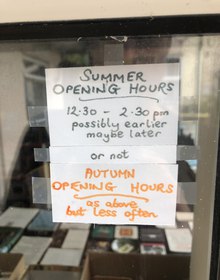 SUMMER
OPENING HOURS
12.30 - 2.30pm
possibly earlier
maybe later
or not
AUTUMN
OPENING HOURS
as above
but less often